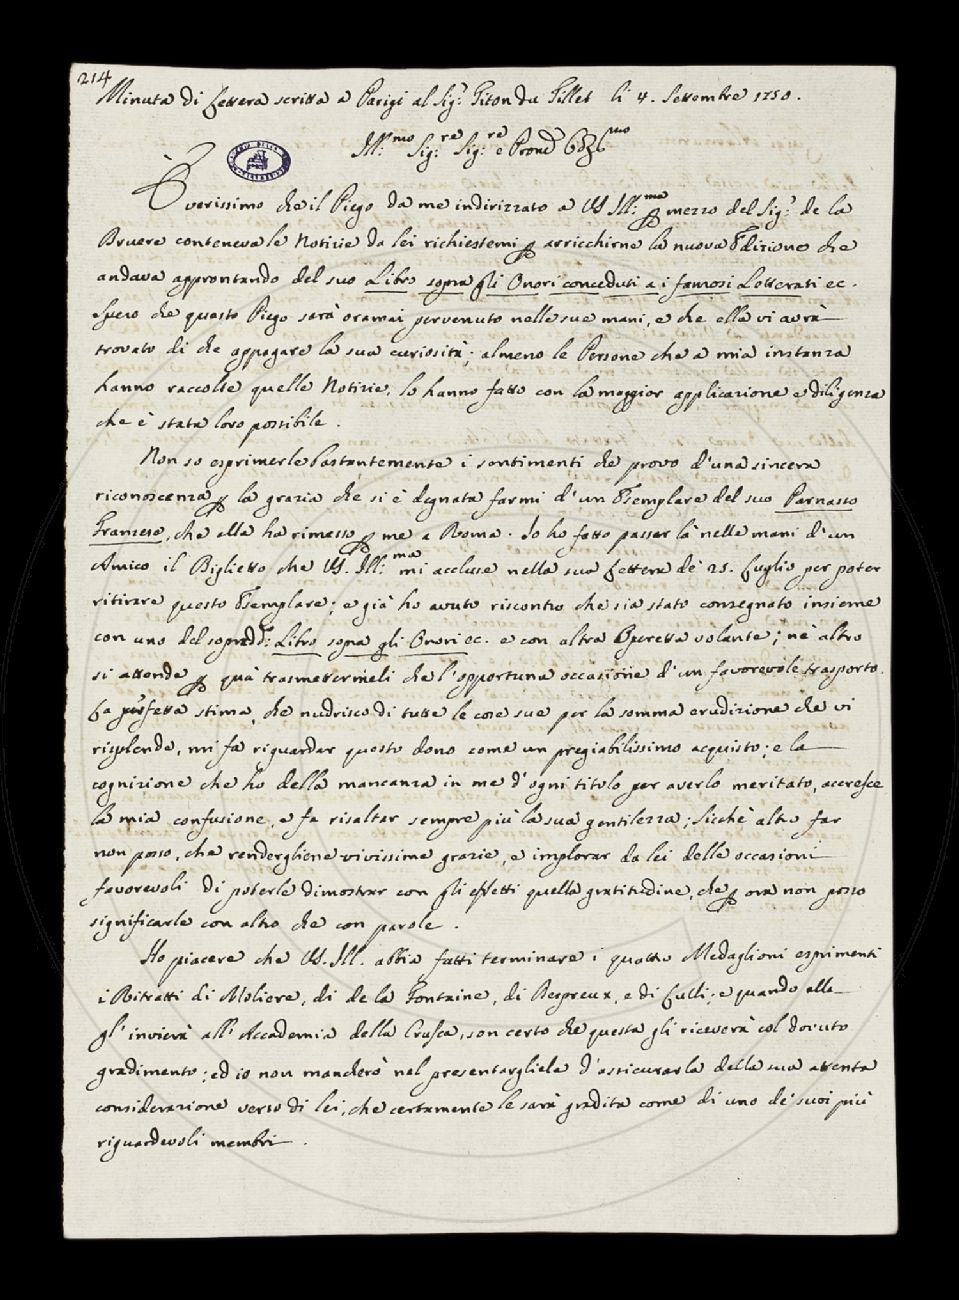 214
Minuta di Lettera scritta a Parigi al Sig.r Titon du Tillet li 4. Settembre 1750.
Ill.mo Sig.re Sig.re e Prone
È verissimo che il Piego da me indirizzato a VS Ill.ma p mezzo del Sig.r de la
Bruere conteneva le Notizie da lei richiestemi p arricchirne la nuova Edizione che
andava approntando del suo Libro sopra gli Onori conceduti a i famosi Letterati ec.
Spero che questo Piego sarà oramai pervenuto nelle sue mani, e che ella vi avrà
trovato di che appagare la sua curiosità; almeno le Persone che a mia instanza
hanno raccolte quelle Notizie, lo hanno fatto con la maggior applicazione e diligenza
che è stata loro possibile.
Non so esprimerle bastantemente i sentimenti che provo d'una sincera
riconoscenza p la grazia che si è degnata farmi d'un Esemplare del suo Parnasso
Franzese, che ella ha rimesso p me a Roma. Io ho fatto passar là nelle mani d'un
Amico il Biglietto che VS. Ill.ma mi accluse nella sua Lettera de' 25. Luglio per poter
ritirare questo Esemplare; e già ho avuto riscontro che sia stato consegnato insieme
con uno del sopradd.o Libro sopra gli Onori ec. e con altra Operetta volante; nè altro
si attende p quà trasmettermeli che l'opportuna occasione d'un favorevole trasporto.
La perfetta stima, che nudrisco di tutte le cose sue per la somma erudizione che vi
risplende, mi fa riguardar questo dono come un pregiabilissimo acquisto; e la
cognizione che ho della mancanza in me d'ogni titolo per averlo meritato, accresce
la mia confusione, e fa risaltar sempre più la sua gentilezza; sicchè altro far
non posso, che rendergliene vivissime grazie, e implorar da lei delle occasioni
favorevoli di poterle dimostrar con gli effetti quella gratitudine, che p ora non posso
significarle con altro che con parole.
Ho piacere che VS. Ill. abbia fatti terminare i quattro Medaglioni esprimenti
i Ritratti di Moliere, di de la Fontaine, di Despreux, e di Lulli; e quando ella
gl'invierà all'Accademia della Crusca, son certo che questa gli riceverà col dovuto
gradimento; ed io non mancherò nel presentargliele d'assicurarla della sua attenta
considerazione verso di lei, che certamente le sarà gradita come di uno de' suoi più
riguardevoli membri.